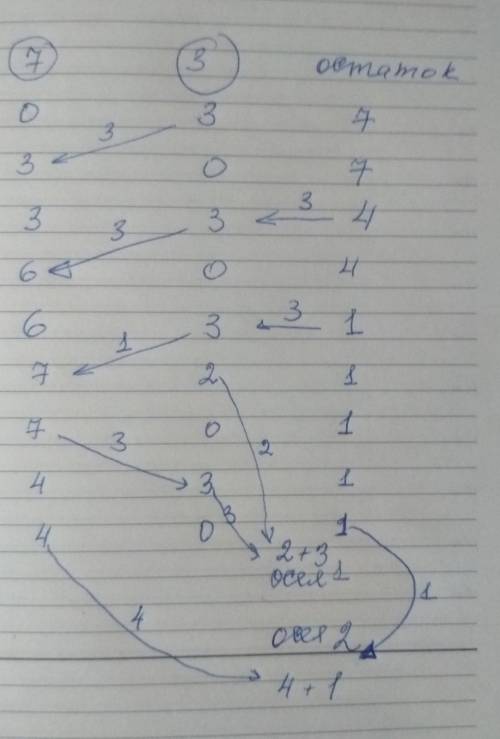 7 3 остаток
0 3 7
3
3 0 7
3 3 3 3 4
6 0 4
6 1 3 3 1
7 2 1
7 3 0 2 1
4 3 1
4 3 0 1
2+3
осел 1
1
4 осел 2
4+1